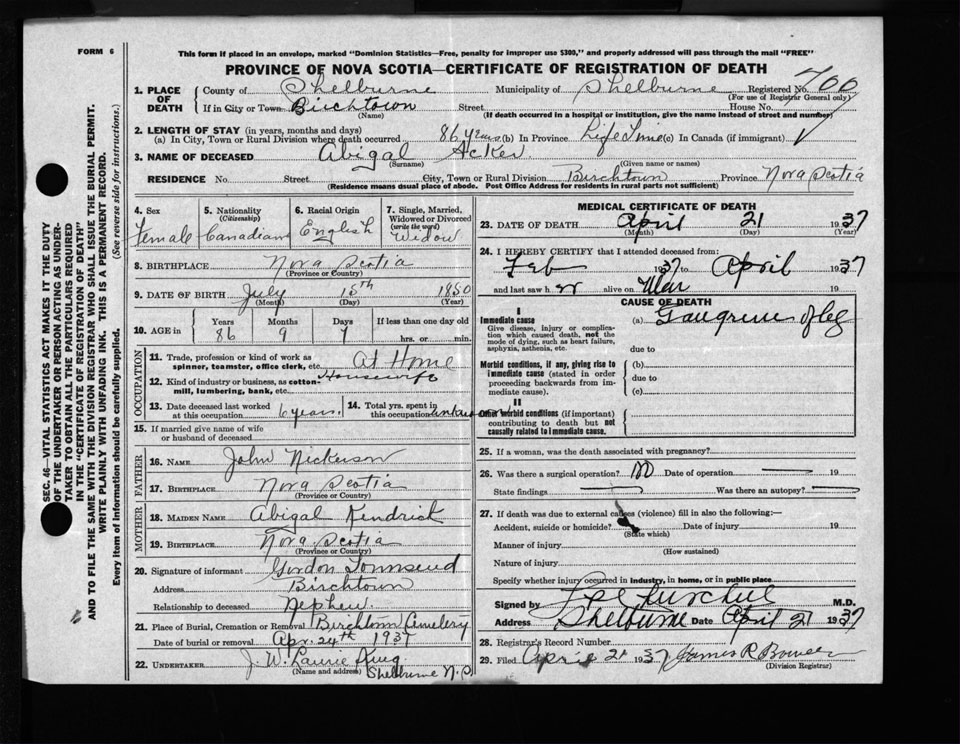 FORM 6
This form if placed in an envelope, marked "Dominion Statistics—Free, penalty for improper use $300," and properly addressed will pass through the mail "FREE"
PROVINCE OF NOVA SCOTIA—CERTIFICATE OF REGISTRATION OF DEATH
1. PLACE OF DEATH County of Shelburne Municipality of Shelburne Registered No. 700
(For use of Registrar General only)
If in City or Town Birchtown Street House No.
(Name) (If death occurred in a hospital or institution, give the name instead of street and number)
2. LENGTH OF STAY (in years, months and days)
(a) In City, Town or Rural Division where death occurred 86 years (b) In Province Life Time (c) In Canada (if immigrant)
3. NAME OF DECEASED Abigal Acker
(Surname) (Given name or names)
RESIDENCE No. Street City, Town or Rural Division Birchtown Province Nova Scotia
(Residence means usual place of abode. Post Office Address for residents in rural parts not sufficient)
4. Sex Female
5. Nationality (Citizenship) Canadian
6. Racial Origin English
7. Single, Married, Widowed or Divorced (write the word) Widow
8. BIRTHPLACE Nova Scotia
(Province or Country)
9. DATE OF BIRTH July 15th 1850
(Month) (Day) (Year)
10. AGE in Years 86 Months 9 Days 7 If less than one day old hrs. or min.
OCCUPATION
11. Trade, profession or kind of work as spinner, teamster, office clerk, etc. At Home
12. Kind of industry or business, as cotton-mill, lumbering, bank, etc. Housewife
13. Date deceased last worked at this occupation 6 years.
14. Total yrs. spent in this occupation
15. If married give name of wife or husband of deceased
FATHER
16. NAME John Nickerson
17. BIRTHPLACE Nova Scotia
(Province or Country)
MOTHER
18. MAIDEN NAME Abigal Kendrick
19. BIRTHPLACE Nova Scotia
(Province or Country)
20. Signature of informant Gordon Townsend
Address Birchtown
Relationship to deceased Nephew.
21. Place of Burial, Cremation or Removal Birchtown Cemetery
Date of burial or removal Apr. 24th 1937
22. UNDERTAKER J. W. Laurie King
(Name and address) Shelburne N.S.
MEDICAL CERTIFICATE OF DEATH
23. DATE OF DEATH April 21 1937
(Month) (Day) (Year)
24. I HEREBY CERTIFY that I attended deceased from:
Feb 1937 to April 1937
and last saw her alive on 19
CAUSE OF DEATH
I
Immediate cause (a) Gangrene of leg
Give disease, injury or complication which caused death, not the mode of dying, such as heart failure, asphyxia, asthenia, etc. due to
Morbid conditions, if any, giving rise to immediate cause (stated in order proceeding backwards from immediate cause). (b)
due to
(c)
II
Other morbid conditions (if important) contributing to death but not causally related to immediate cause.
25. If a woman, was the death associated with pregnancy?
26. Was there a surgical operation? No Date of operation 19
State findings Was there an autopsy?
27. If death was due to external causes (violence) fill in also the following:—
Accident, suicide or homicide? Date of injury 19
(State which)
Manner of injury
(How sustained)
Nature of injury
Specify whether injury occurred in industry, in home, or in public place
Signed by Churchill M.D.
Address Shelburne Date April 21 1937
28. Registrar's Record Number
29. Filed April 21 1937 James R Bower
(Division Registrar)
SEC. 46—VITAL STATISTICS ACT MAKES IT THE DUTY
OF THE UNDERTAKER OR PERSON ACTING AS UNDER-
TAKER TO OBTAIN ALL THE PARTICULARS REQUIRED
IN THE "CERTIFICATE OF REGISTRATION OF DEATH"
AND TO FILE THE SAME WITH THE DIVISION REGISTRAR WHO SHALL ISSUE THE BURIAL PERMIT.
WRITE PLAINLY WITH UNFADING INK. THIS IS A PERMANENT RECORD.
Every item of information should be carefully supplied. (See reverse side for instructions.)